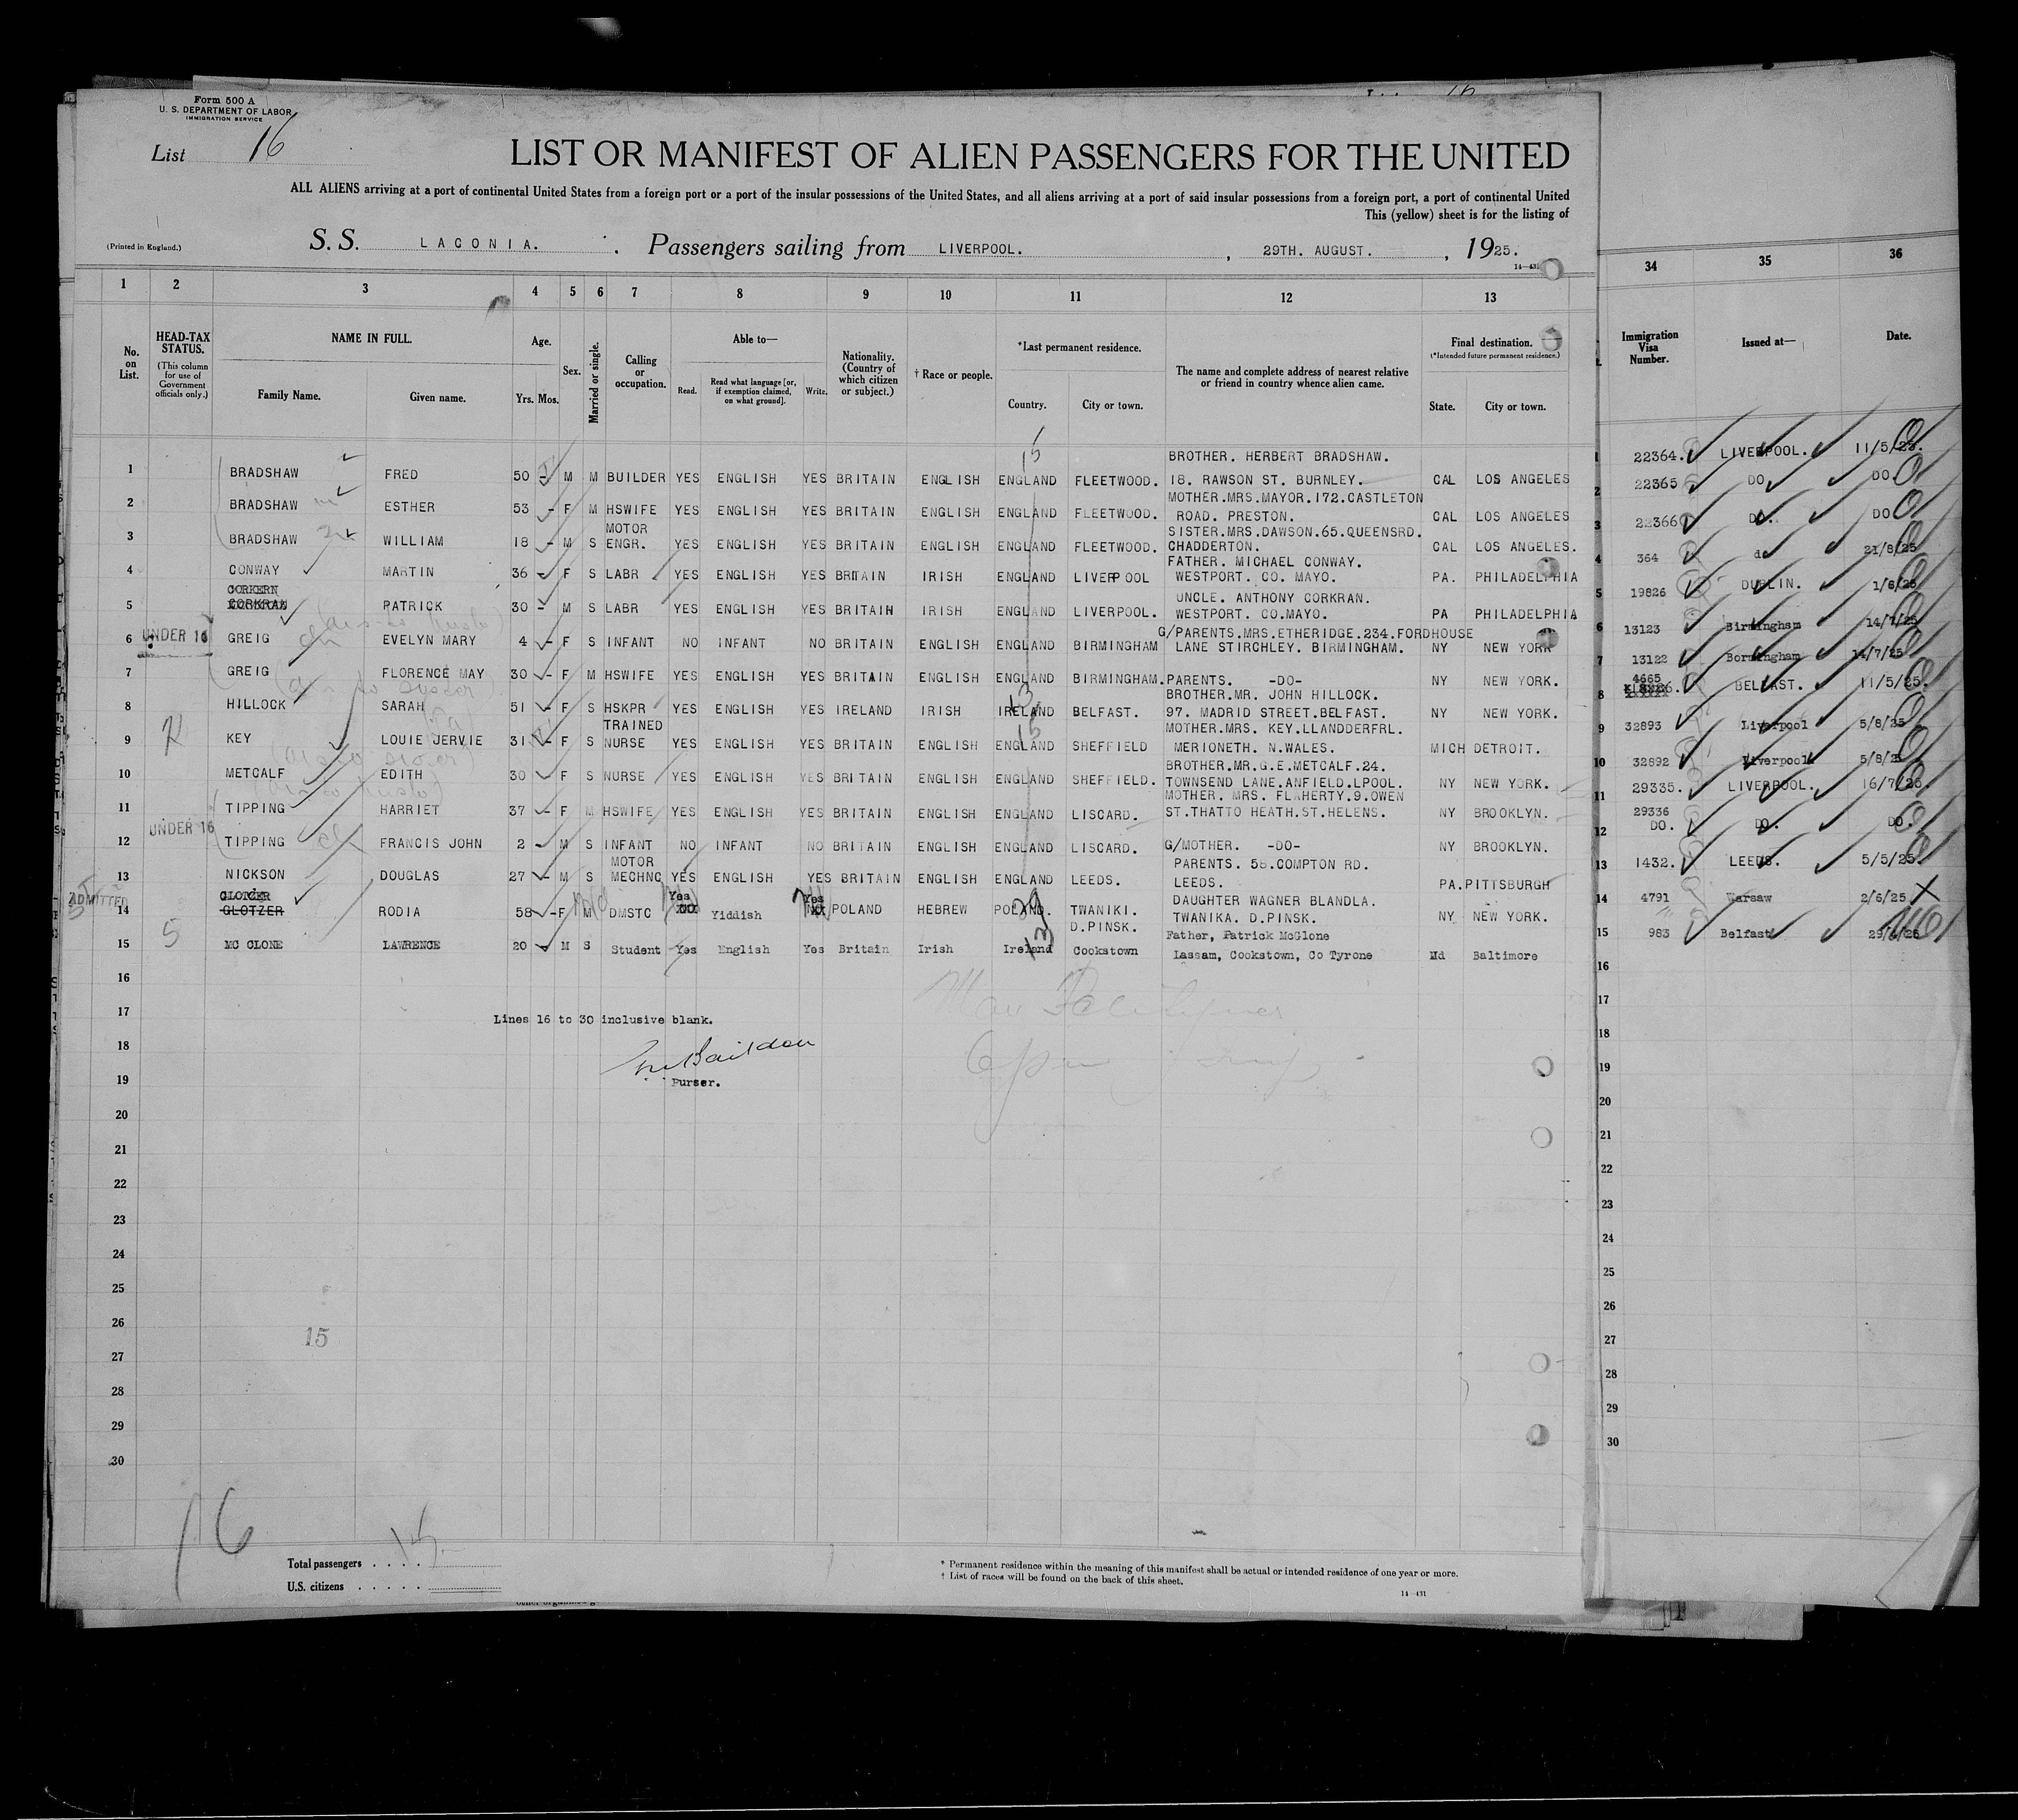 Form 500 A
U. S. DEPARTMENT OF LABOR
IMMIGRATION SERVICE
List 16
LIST OR MANIFEST OF ALIEN PASSENGERS FOR THE UNITED
ALL ALIENS arriving at a port of continental United States from a foreign port or a port of the insular possessions of the United States, and all aliens arriving at a port of said insular possessions from a foreign port, a port of continental United
This (yellow) sheet is for the listing of
(Printed in England.)
S. S. LACONIA. Passengers sailing from LIVERPOOL. , 29TH. AUGUST. , 1925.
14—431
1 2 3 4 5 6 7 8 9 10 11 12 13 34 35 36
No. on List.
HEAD-TAX STATUS.
(This column for use of Government officials only.)
NAME IN FULL.
Family Name. Given name.
Age.
Yrs. Mos.
Sex.
Married or single.
Calling or occupation.
Able to—
Read. Read what language [or, if exemption claimed, on what ground]. Write.
Nationality. (Country of which citizen or subject.)
† Race or people.
*Last permanent residence.
Country. City or town.
The name and complete address of nearest relative or friend in country whence alien came.
Final destination.
(*Intended future permanent residence.)
State. City or town.
Immigration Visa Number.
Issued at—
Date.
BROTHER. HERBERT BRADSHAW.
1 BRADSHAW FRED 50 - M M BUILDER YES ENGLISH YES BRITAIN ENGLISH ENGLAND FLEETWOOD. 18. RAWSON ST. BURNLEY. CAL LOS ANGELES 1 22364. LIVERPOOL. 11/5/25.
MOTHER.MRS.MAYOR.172.CASTLETON
2 BRADSHAW ESTHER 53 - F M HSWIFE YES ENGLISH YES BRITAIN ENGLISH ENGLAND FLEETWOOD. ROAD. PRESTON. CAL LOS ANGELES 2 22365 DO. DO.
MOTOR SISTER.MRS.DAWSON.65.QUEENSRD.
3 BRADSHAW WILLIAM 18 - M S ENGR. YES ENGLISH YES BRITAIN ENGLISH ENGLAND FLEETWOOD. CHADDERTON. CAL LOS ANGELES. 3 22366 DO. DO
FATHER. MICHAEL CONWAY.
4 CONWAY MARTIN 36 - F S LABR YES ENGLISH YES BRITAIN IRISH ENGLAND LIVERPOOL WESTPORT. CO. MAYO. PA. PHILADELPHIA 4 364 do 21/8/25
CORKERN UNCLE. ANTHONY CORKRAN.
5 CORKRAN PATRICK 30 - M S LABR YES ENGLISH YES BRITAIN IRISH ENGLAND LIVERPOOL. WESTPORT. CO.MAYO. PA PHILADELPHIA 5 19826 DUBLIN. 1/6/25
UNDER 16 G/PARENTS.MRS.ETHERIDGE.234.FORDHOUSE
6 GREIG EVELYN MARY 4 - F S INFANT NO INFANT NO BRITAIN ENGLISH ENGLAND BIRMINGHAM LANE STIRCHLEY. BIRMINGHAM. NY NEW YORK 6 13123 Birmingham 14/7/25
7 GREIG FLORENCE MAY 30 - F M HSWIFE YES ENGLISH YES BRITAIN ENGLISH ENGLAND BIRMINGHAM. PARENTS. -DO- NY NEW YORK. 7 13122 Bormingham 14/7/25
BROTHER.MR. JOHN HILLOCK. 4665
8 HILLOCK SARAH 51 - F S HSKPR YES ENGLISH YES IRELAND IRISH IRELAND BELFAST. 97. MADRID STREET.BELFAST. NY NEW YORK. 8 BELFAST. 11/5/25.
TRAINED MOTHER.MRS. KEY.LLANDDERFRL.
9 KEY LOUIE JERVIE 31 - F S NURSE YES ENGLISH YES BRITAIN ENGLISH ENGLAND SHEFFIELD MERIONETH. N.WALES. MICH DETROIT. 9 32893 Liverpool 5/8/25
BROTHER.MR.G.E.METCALF.24.
10 METCALF EDITH 30 - F S NURSE YES ENGLISH YES BRITAIN ENGLISH ENGLAND SHEFFIELD. TOWNSEND LANE.ANFIELD.LPOOL. NY NEW YORK. 10 32892 Liverpool 5/8/25
MOTHER. MRS. FLAHERTY.9.OWEN
11 TIPPING HARRIET 37 - F M HSWIFE YES ENGLISH YES BRITAIN ENGLISH ENGLAND LISCARD. ST.THATTO HEATH.ST.HELENS. NY BROOKLYN. 11 29335. LIVERPOOL. 16/7/25.
UNDER 16 29336
12 TIPPING FRANCIS JOHN 2 - M S INFANT NO INFANT NO BRITAIN ENGLISH ENGLAND LISCARD. G/MOTHER. -DO- NY BROOKLYN. 12 DO. DO. DO.
MOTOR PARENTS. 58.COMPTON RD.
13 NICKSON DOUGLAS 27 - M S MECHNC YES ENGLISH YES BRITAIN ENGLISH ENGLAND LEEDS. LEEDS. PA. PITTSBURGH 13 1432. LEEDS. 5/5/25.
ADMITTED Yes Yes DAUGHTER WAGNER BLANDLA.
14 GLOTZER RODIA 58 - F M DMSTC Yiddish POLAND HEBREW POLAND. TWANIKI. TWANIKA. D.PINSK. NY NEW YORK. 14 4791 Warsaw 2/6/25
D.PINSK. Father, Patrick McGlone
15 MC CLONE LAWRENCE 20 M S Student Yes English Yes Britain Irish Ireland Cookstown Lassam, Cookstown, Co Tyrone Md Baltimore 15 983 Belfast 29/6/25
16
17
Lines 16 to 30 inclusive blank.
18
19 Purser.
20
21
22
23
24
25
26
15
27
28
29
30
16
Total passengers . . . . 15
U.S. citizens . . . . .
* Permanent residence within the meaning of this manifest shall be actual or intended residence of one year or more.
† List of races will be found on the back of this sheet.
14—431